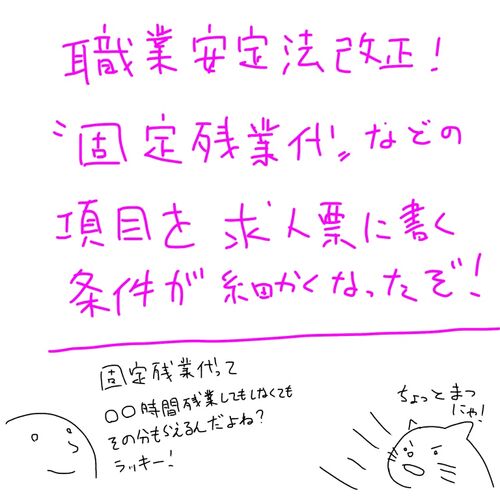 職業安定法改正!
"固定残業代"などの
項目を求人票に書く
条件が細かくなったぞ!
固定残業代って
〇〇時間残業してもしなくても
その分もらえるんだよね?
ラッキー!
ちょっとまつ
にゃ!